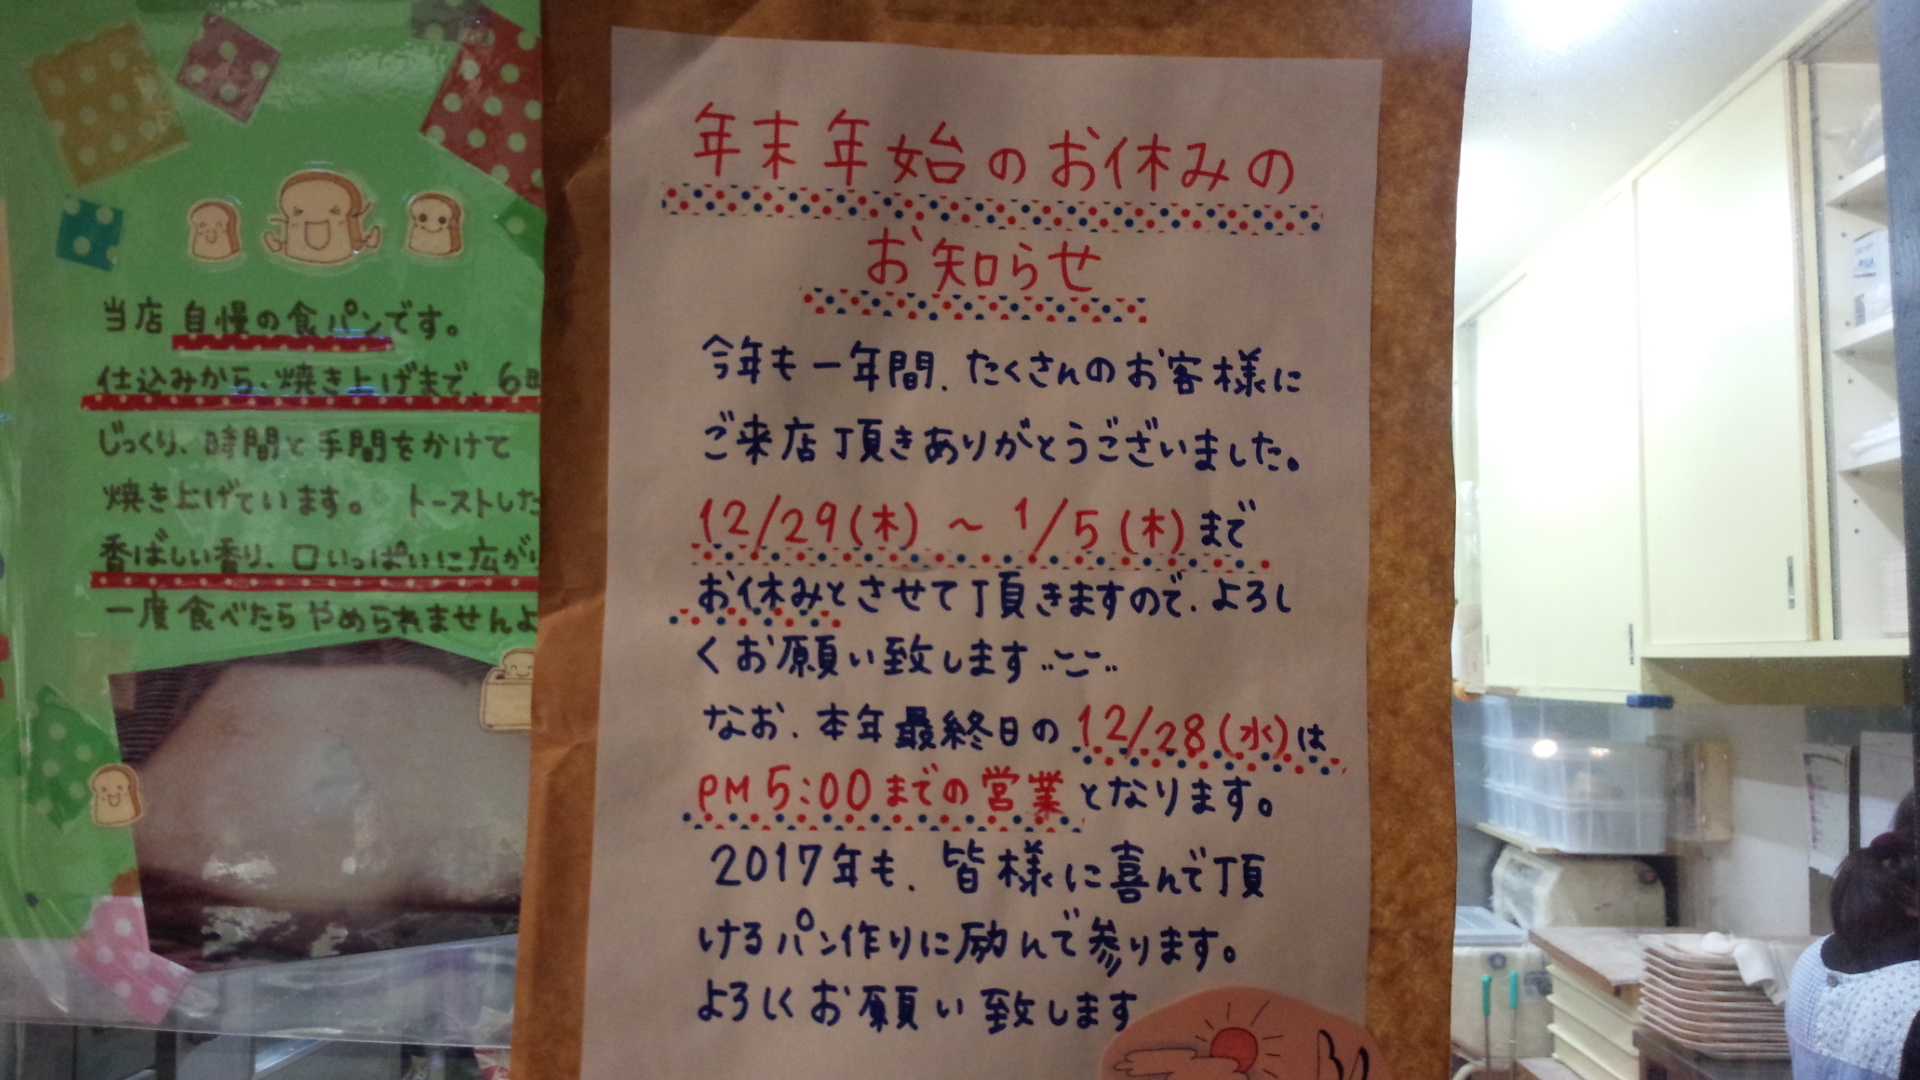 当店 自慢の食パンです。
仕込みから、焼き上げまで、6
じっくり、時間と手間をかけて
焼き上げています。 トーストした
香ばしい香り、口いっぱいに広が
一度食べたらやめられませんよ
年末年始のお休みの
お知らせ
今年も一年間、たくさんのお客様に
ご来店頂きありがとうございました。
12/29(木) ～ 1/5(木)まで
お休みとさせて頂きますので、よろし
くお願い致します
なお、本年最終日の12/28(水)は
PM5:00までの営業となります。
2017年も、皆様に喜んで頂
けるパン作りに励んで参ります。
よろしくお願い致します